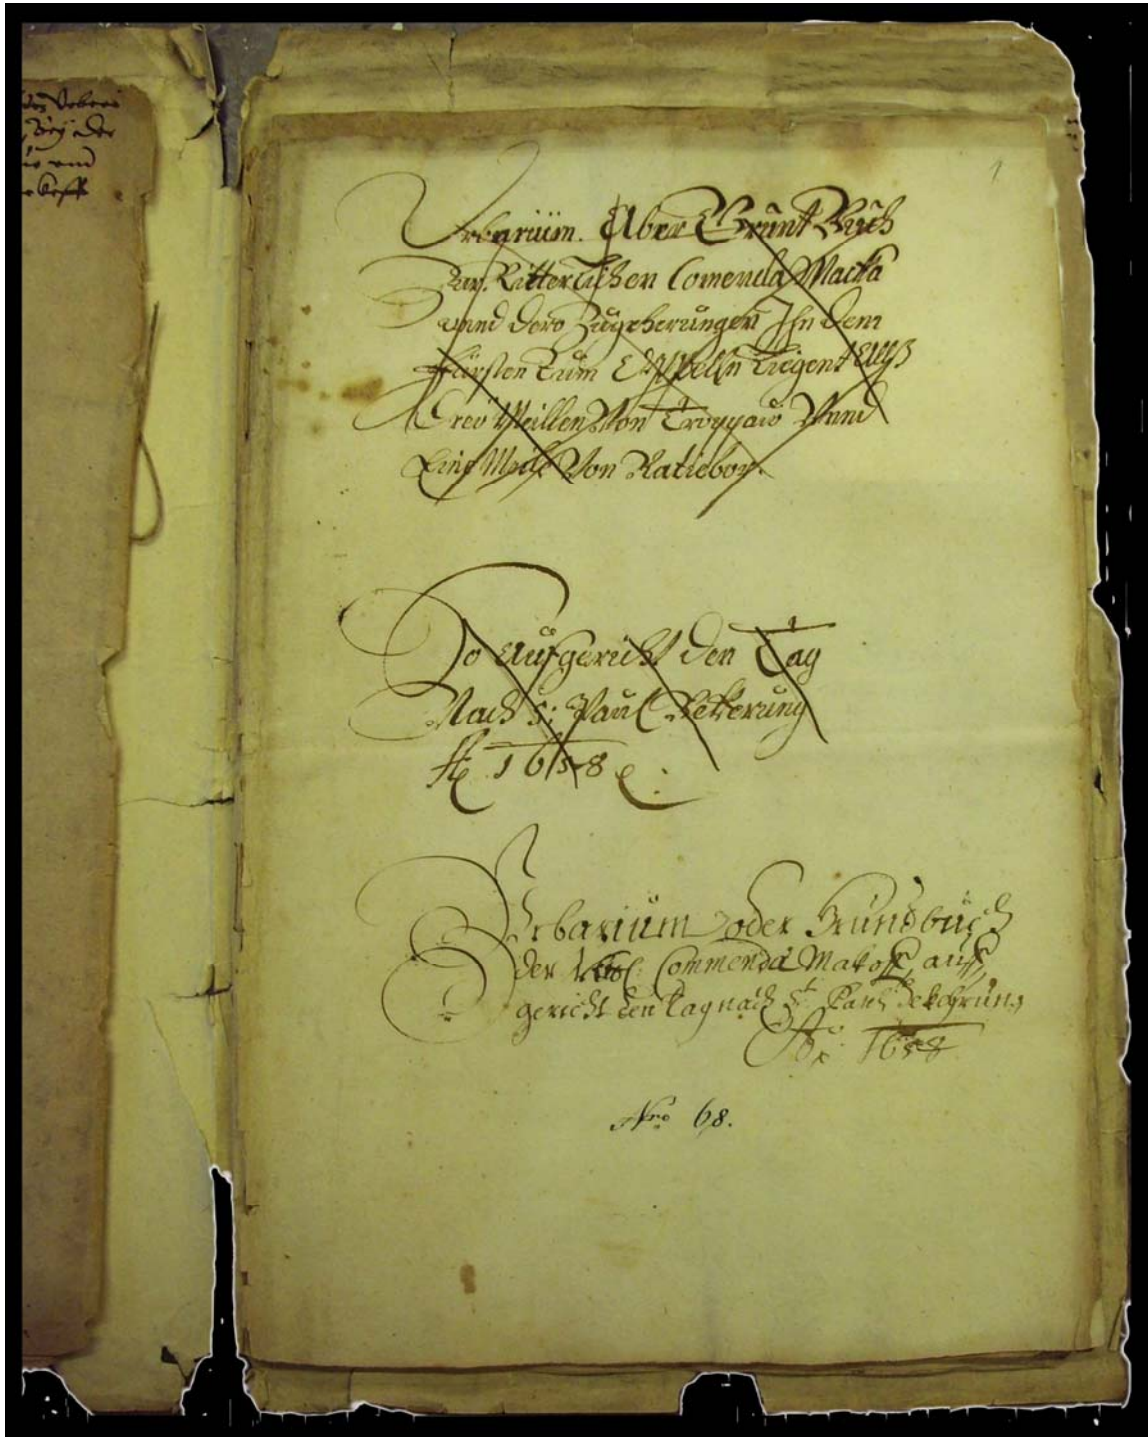 Urbarium. Aber Grunt Buch
Zur Ritterlichen Comenda Macka
vnnd dero Zugeherungen Ihn dem
Fürsten Tum Oppelln Liegent
Drei Meillen Von Troppaw Vnnd
Eine Meile Von Ratiebor.
So Aufgericht den Tag
Nach S: Paul Bekerung
1658
Urbarium oder Grundbuch
der Commenda Makoff, auff
gericht den tag nach St Pauli bekehrung
Ao: 1658
Nro 68.
1
bey der
vnd